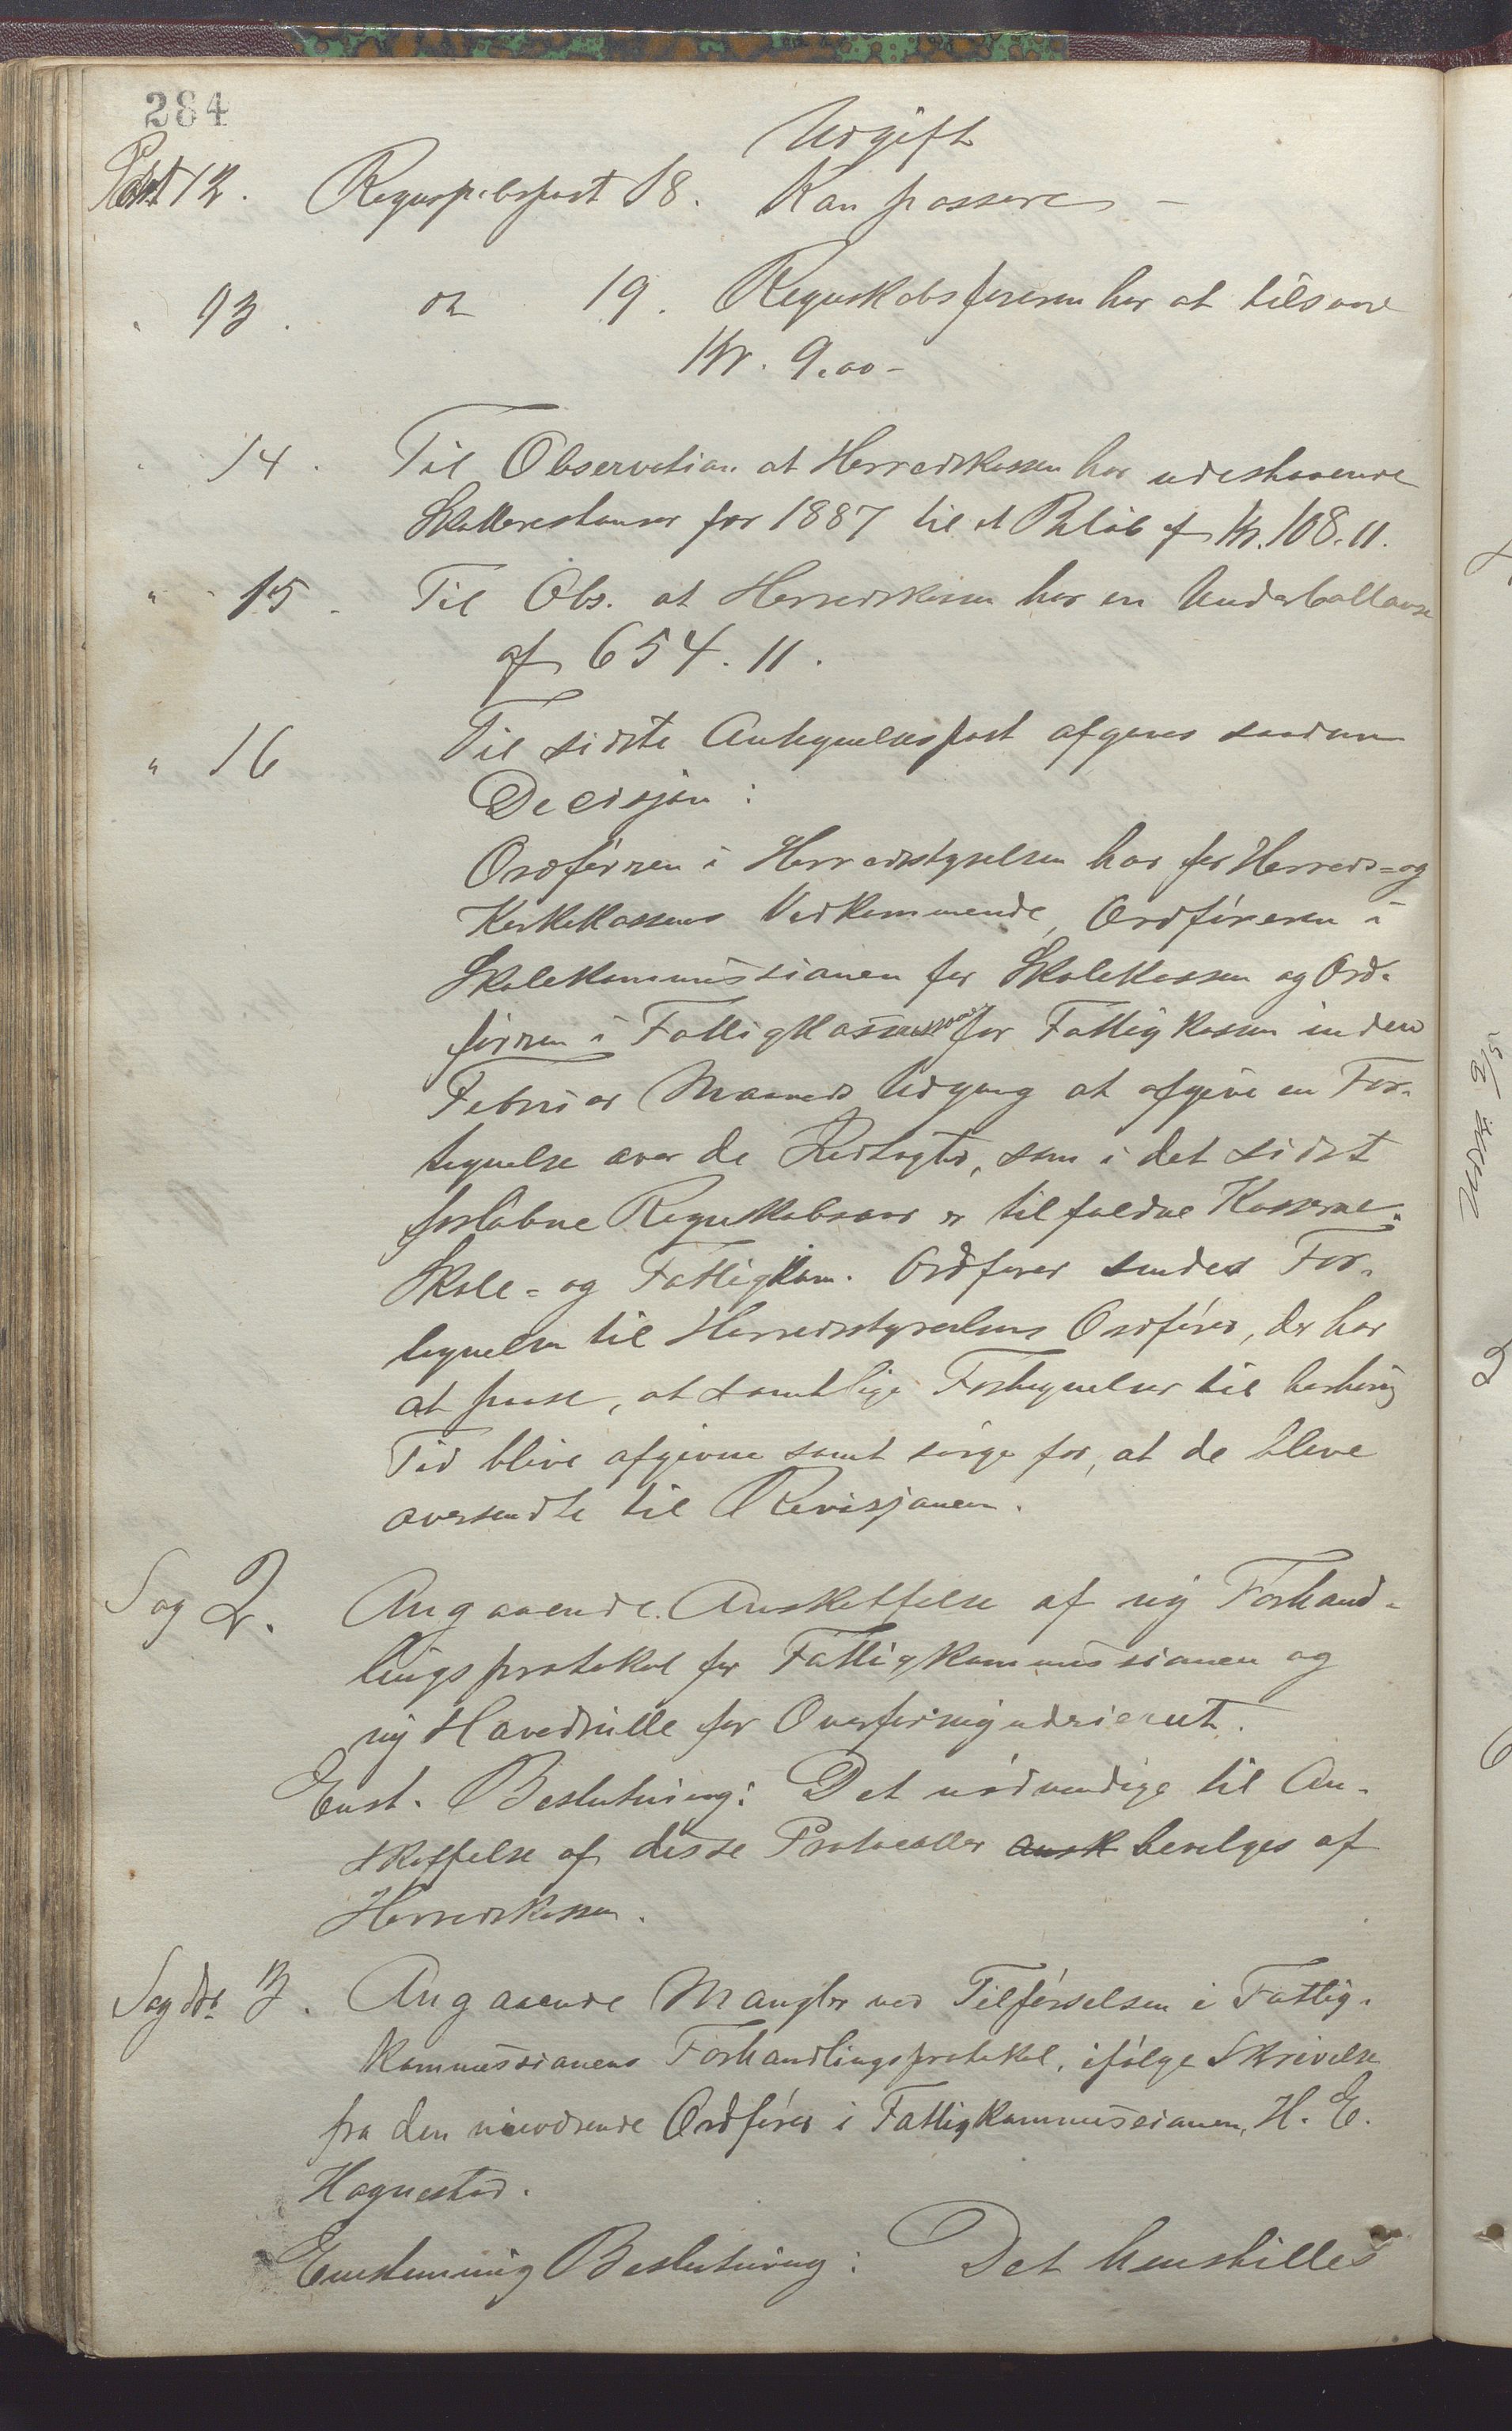 284
Udgift
Post 12. Regnskabspost 18. Kan passere –
" 13. do 19. Regnskabsføreren har at tilsvare
Kr. 9.00 –
" 14. Til Observation at Herredskassen har udestaaende
Skatterestanser for 1887 til et Beløb af Kr. 108.11.
" 15. Til Obs. at Herredskassen har en Underballanse
af 654.11.
" 16 Til sidste Antegnelsespost afgives saadan
Decisjon:
Ordføreren i Herredsstyrelsen har for Herreds- og
Kirkekassens Vedkommende, Ordføreren i
Skolekommissionen for Skolekassen og Ord-
føreren i for Fattigkassen inden
Februar Maaneds Udgang at afgive en For-
tegnelse over de Indtægter, som i det sidst
forløbne Regnskabsaar er tilfaldne Kasserne.
Skole- og Fattigkom. Ordfører sender For-
tegnelsen til Herredsstyrelsens Ordfører, der har
at paase, at samtlige Fortegnelser til
Tid blive afgivne samt sørge for, at de bleve
oversendte til Revisjonen.
Sag 2. Angaaende Anskaffelse af ny Forhand-
lingsprotokol for Fattigkommissionen og
ny Hovedrulle for
Enst. Beslutning: Det nødvendige til An-
skaffelse af disse Protocoller ansk bevilges af
Herredskassen.
Sag No 3. Angaaende Mangler ved Tilførselsen i Fattig-
kommissionens Forhandlingsprotokol, ifølge Skrivelse
fra den nuværende Ordfører i Fattigkommissionen, H. E.
Hognestad.
Enstemmig Beslutning: Det henstilles